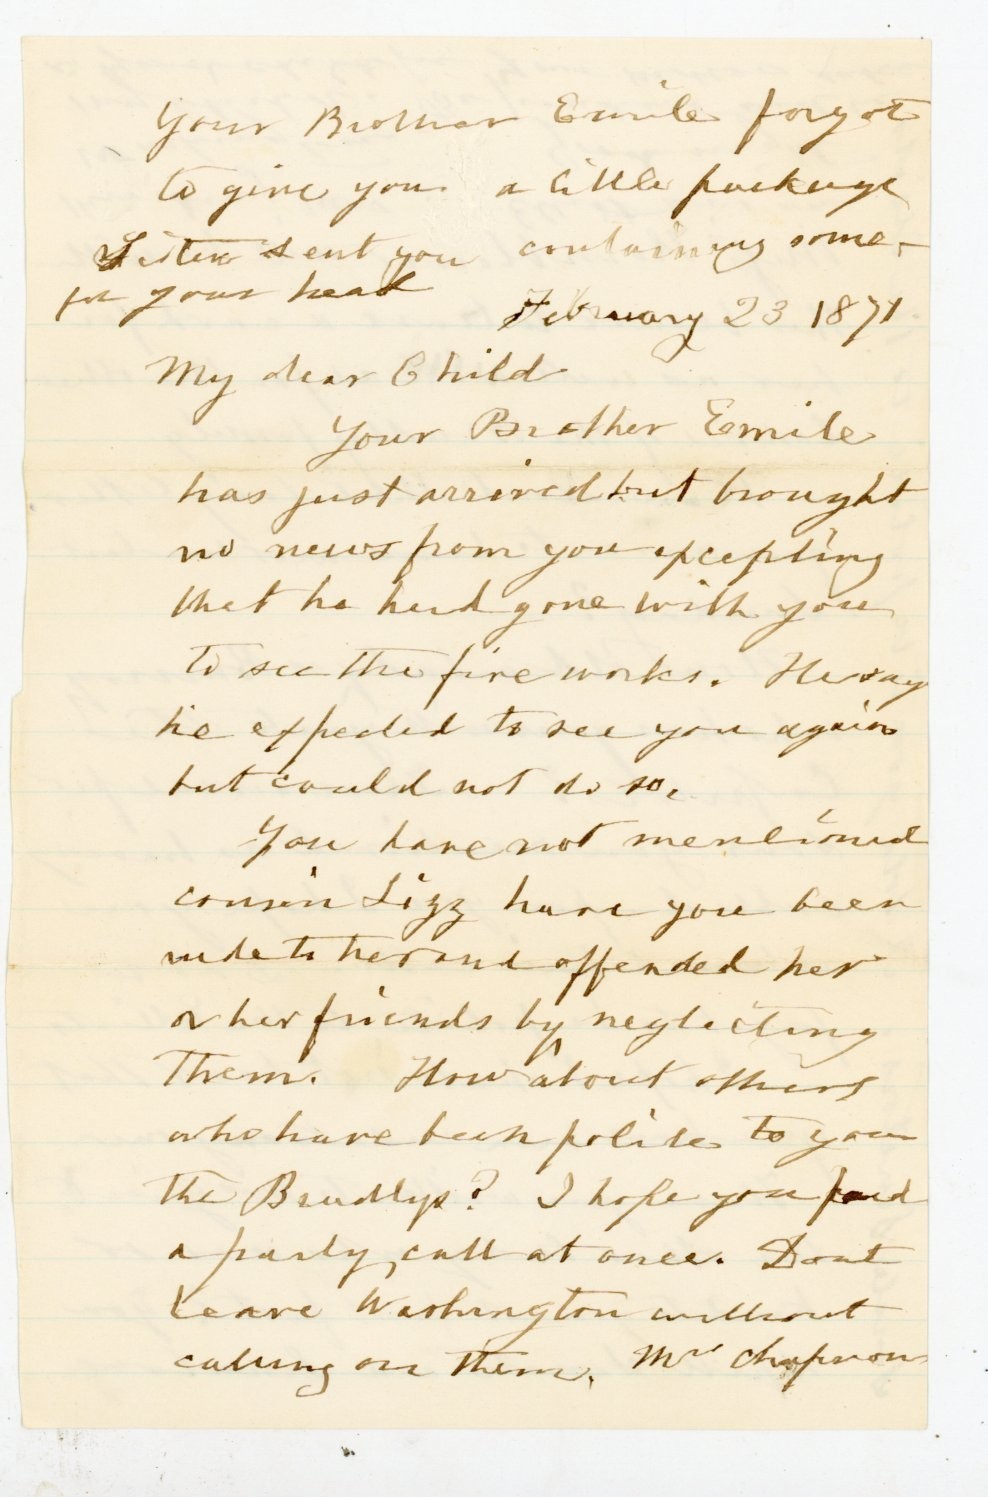 Your Brother Emile forgot
to give you a little package
Sister sent you containing some-
for your head
February 23 1871
My dear Child
Your Brother Emile
has just arrived but brought
no news from you excepting
that he had gone with you
to see the fire works. He say
he expected to see you again
but could not do so.
You have not mentioned
cousin Lizz have you been
rude to her and offended her
or her friends by neglecting
them. How about others
who have been polite to you
the Bradlys? I hope you paid
a party call at once. Dont
leave Washington without
calling on them. Mrs